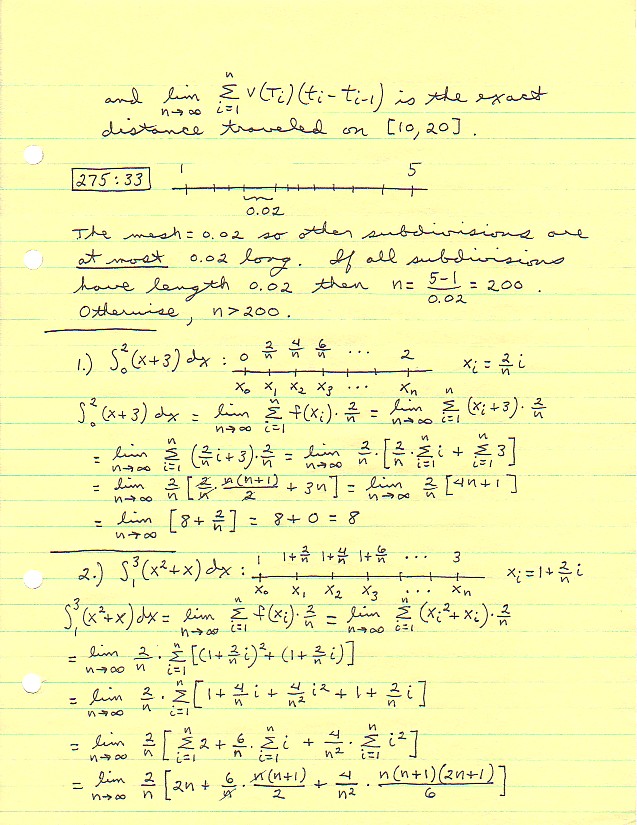 and lim n→∞ n Σ i=1 v(Ti)(ti - ti-1) is the exact
distance traveled on [10,20].
275:33 1 5
0.02
The mesh = 0.02 so other subdivisions are
at most 0.02 long. If all subdivisions
have length 0.02 then n = 5-1/0.02 = 200.
Otherwise, n > 200.
1.) ∫₀² (x+3) dx : 0 2/n 4/n 6/n ... 2 xi = 2/n i
x₀ x₁ x₂ x₃ ... xn
∫₀² (x+3) dx = lim n→∞ n Σ i=1 f(xi) · 2/n = lim n→∞ n Σ i=1 (xi+3) · 2/n
= lim n→∞ n Σ i=1 (2/n i + 3) · 2/n = lim n→∞ 2/n · [2/n · n Σ i=1 i + n Σ i=1 3]
= lim n→∞ 2/n [2/n · n(n+1)/2 + 3n] = lim n→∞ 2/n [4n+1]
= lim n→∞ [8 + 2/n] = 8 + 0 = 8
2.) ∫₁³ (x²+x) dx : 1 1+2/n 1+4/n 1+6/n ... 3 xi = 1 + 2/n i
x₀ x₁ x₂ x₃ ... xn
∫₁³ (x²+x) dx = lim n→∞ n Σ i=1 f(xi) · 2/n = lim n→∞ n Σ i=1 (xi² + xi) · 2/n
= lim n→∞ 2/n · n Σ i=1 [(1 + 2/n i)² + (1 + 2/n i)]
= lim n→∞ 2/n · n Σ i=1 [1 + 4/n i + 4/n² i² + 1 + 2/n i]
= lim n→∞ 2/n [n Σ i=1 2 + 6/n · n Σ i=1 i + 4/n² · n Σ i=1 i²]
= lim n→∞ 2/n [2n + 6/n · n(n+1)/2 + 4/n² · n(n+1)(2n+1)/6]